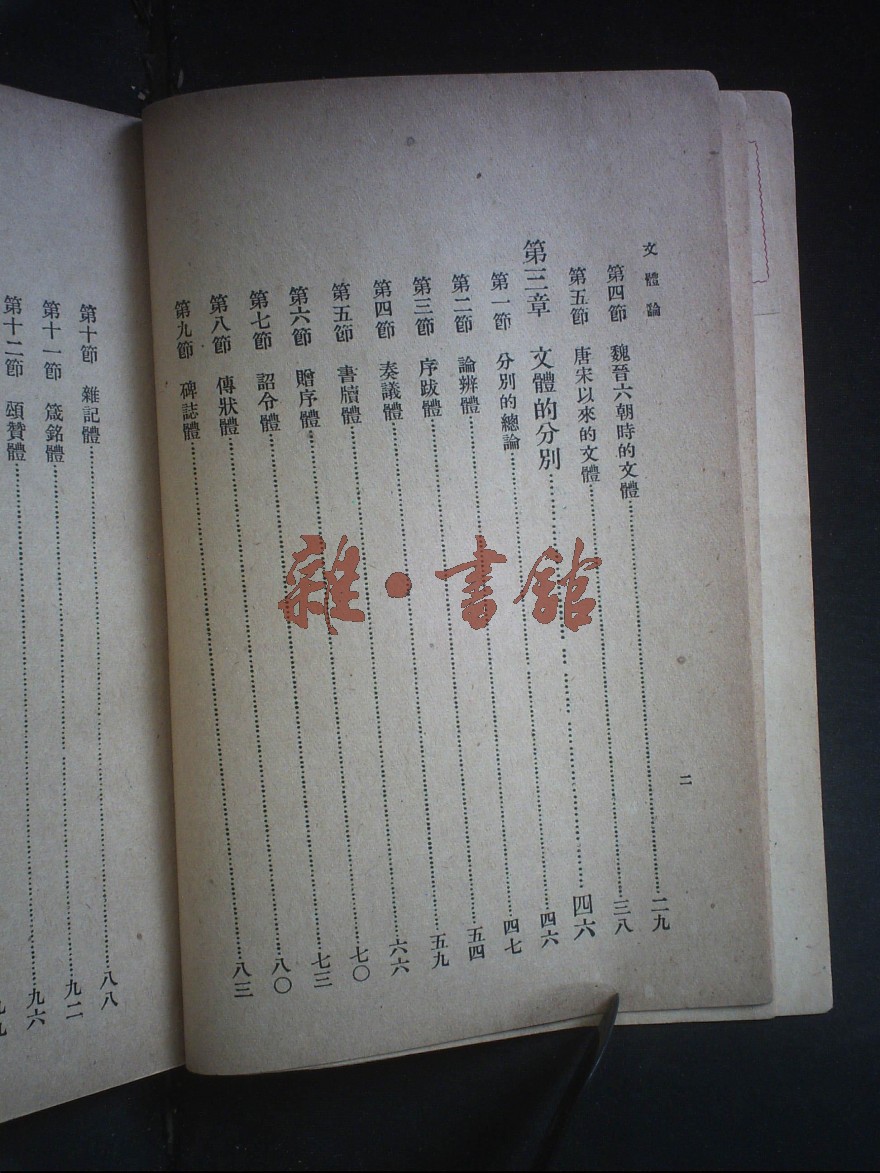 文體論
第四節 魏晉六朝時的文體……二九
第五節 唐宋以來的文體……三八
第三章 文體的分別……四六
第一節 分別的總論……四六
第二節 論辨體……四七
第三節 序跋體……五四
第四節 奏議體……五九
第五節 書牘體……六六
第六節 贈序體……七〇
第七節 詔令體……七三
第八節 傳狀體……八〇
第九節 碑誌體……八三
二
第十節 雜記體……八八
第十一節 箴銘體……九二
第十二節 頌贊體……九六
雜·書館